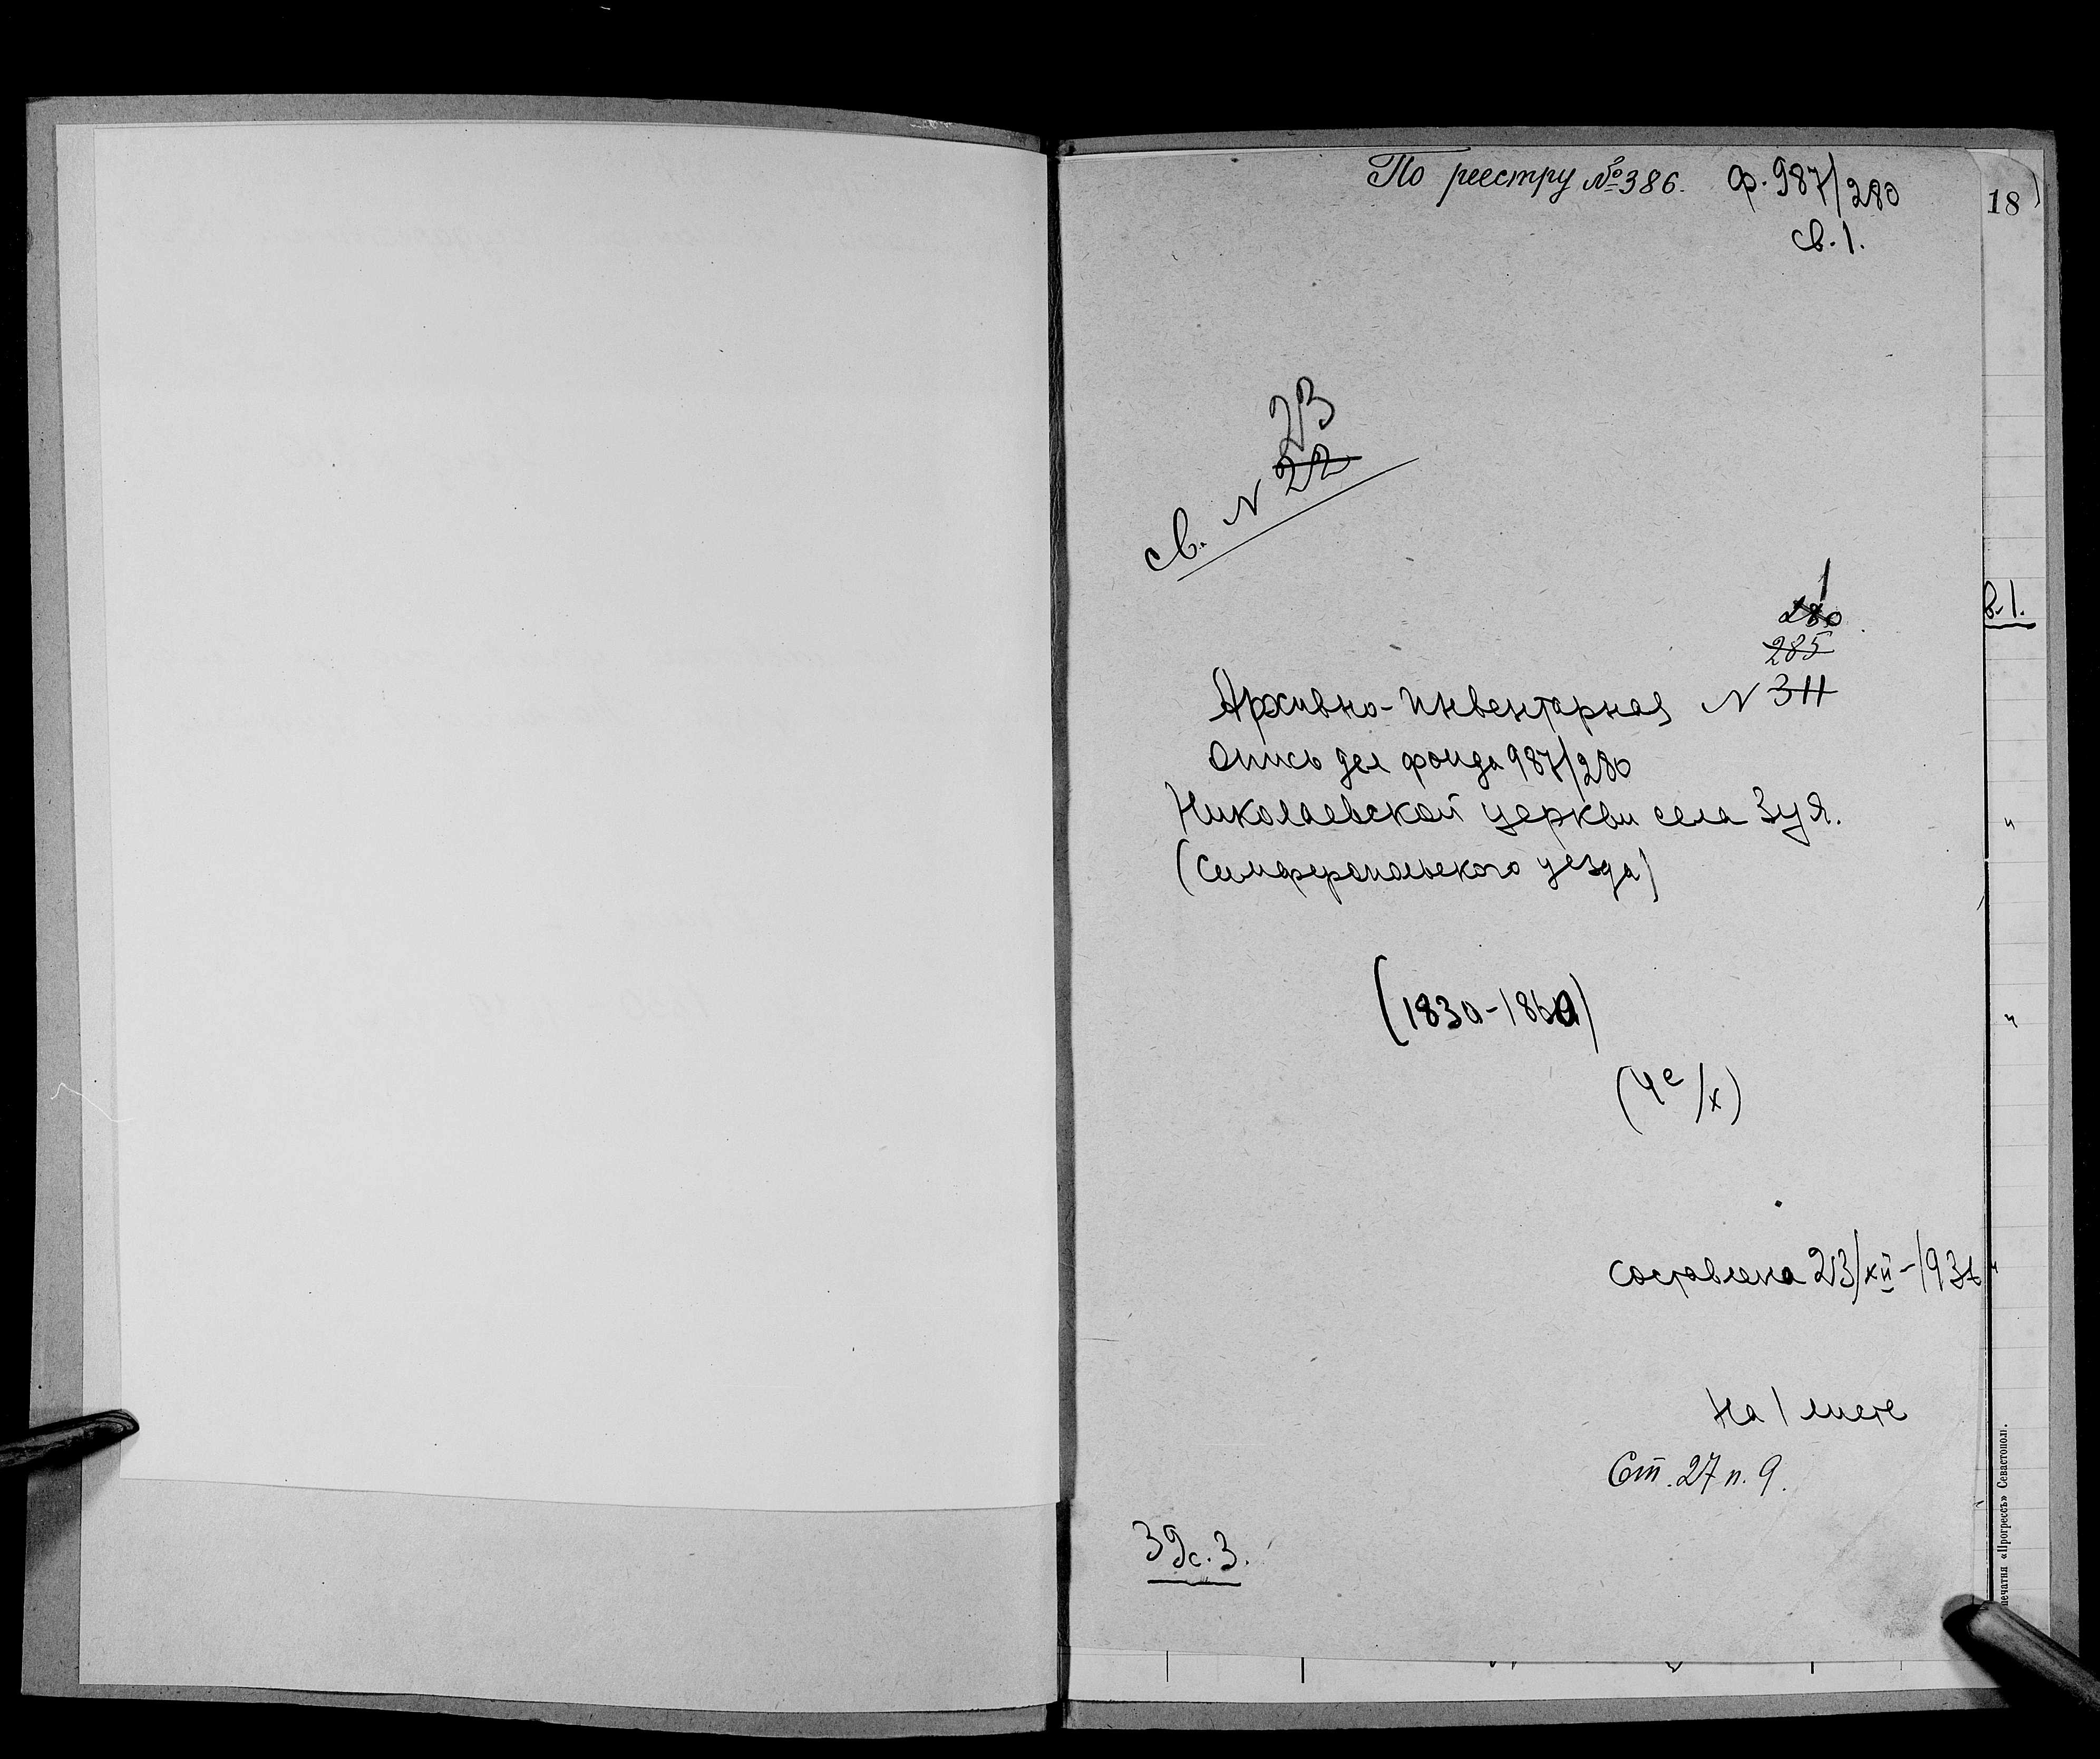 По реестру № 386. Ф. 987/280
св. 1.
18
23
св. N 22
1
280
285
Архивно-инвентарная N 311
Опись дел фонда 987/280
Николаевской церкви села Зуя.
(Симферопольского уезда)
(1830-1860)
(4 е/х)
составлена 23/XII-193
На 1 листе
Ст. 27 п. 9.
3 Эс. 3.
в. 1.
"
"
печатня «Прогрессъ» Севастополь.